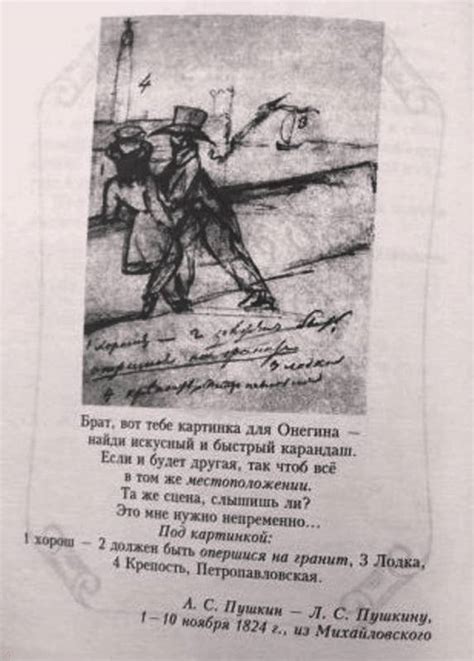 4
3
1 хорош — 2 должен быть
опершися на гранит
3 лодка
4 крепость Петропавловская
Брат, вот тебе картинка для Онегина —
найди искусный и быстрый карандаш.
Если и будет другая, так чтоб всё
в том же местоположении.
Та же сцена, слышишь ли?
Это мне нужно непременно...
Под картинкой:
1 хорош — 2 должен быть опершися на гранит, 3 Лодка,
4 Крепость, Петропавловская.
А. С. Пушкин — Л. С. Пушкину,
1—10 ноября 1824 г., из Михайловского